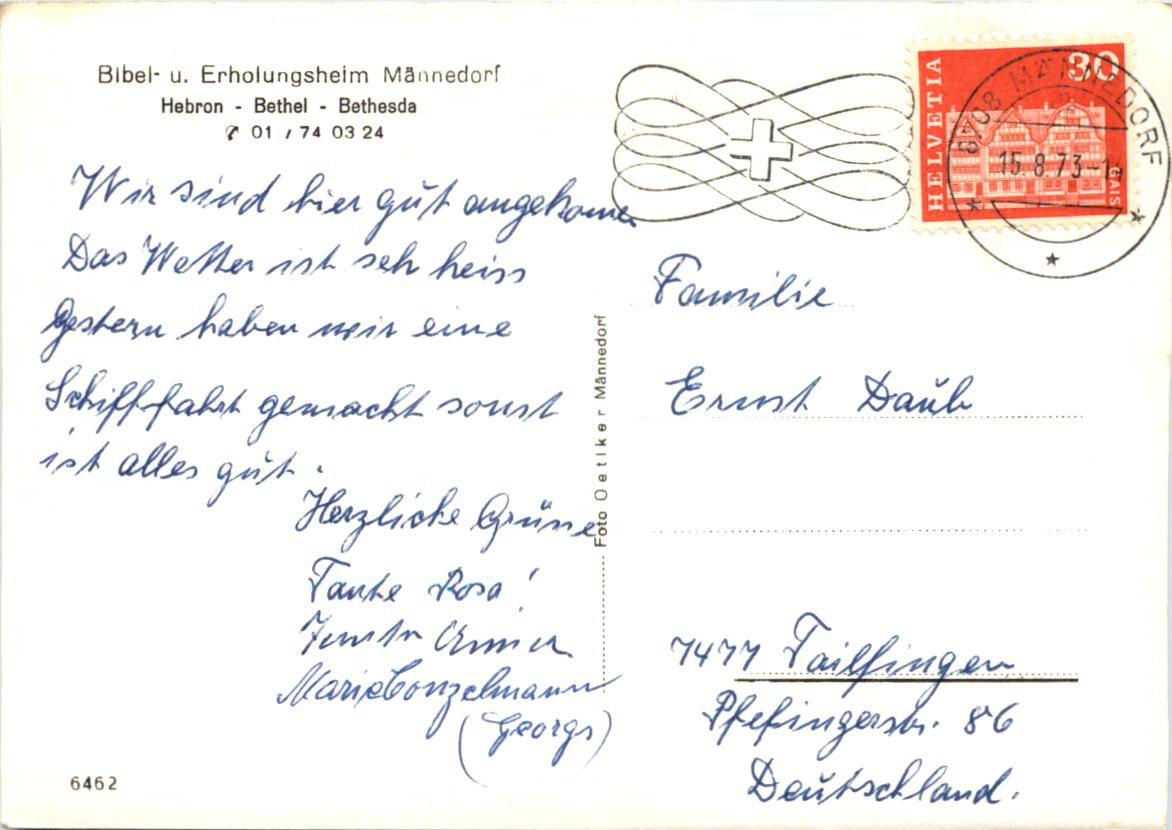 Bibel- u. Erholungsheim Männedorf
Hebron - Bethel - Bethesda
01 / 74 03 24
Wir sind hier gut angekomen
Das Wetter ist seh heiss
Gestern haben wir eine
Schifffahrt gemacht sonst
ist alles gut.
Herzliche Grüsse
Tante Rosa!
Marie Conzelmann
(Georgs)
6462
Foto Oetiker Männedorf
HELVETIA
30
GAIS
8708 MÄNNEDORF
15.8.73-
Familie
Ernst Daub
7477 Tailfingen
Pfefingerstr. 86
Deutschland.